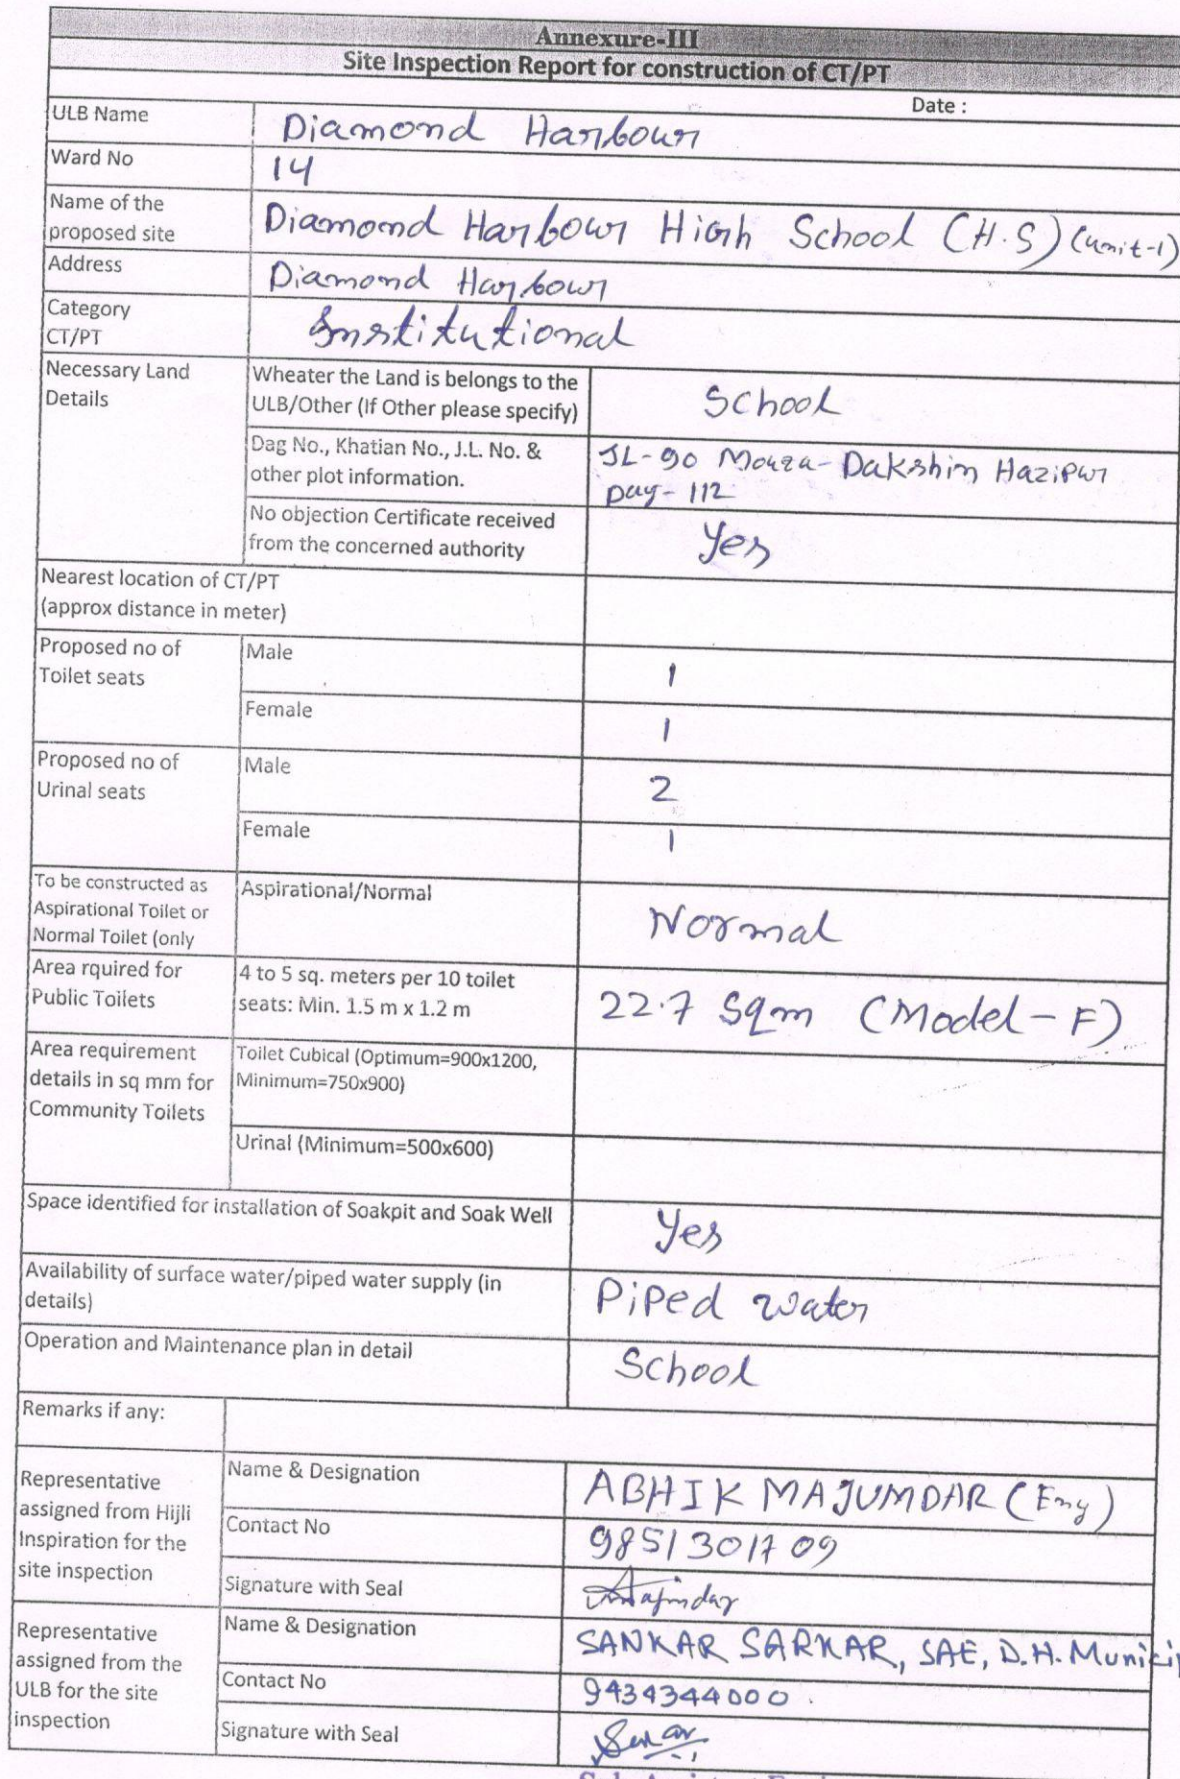 Annexure-III
Site Inspection Report for construction of CT/PT
Date :
ULB Name Diamond Harbour
Ward No 14
Name of the
proposed site Diamond Harbour High School (H.S) (unit-1)
Address Diamond Harbour
Category
CT/PT Institutional
Necessary Land
Details
Wheater the Land is belongs to the
ULB/Other (If Other please specify) School
Dag No., Khatian No., J.L. No. &
other plot information.
JL-90 Mouza-Dakshin Hazipur
Dag-112
No objection Certificate received
from the concerned authority Yes
Nearest location of CT/PT
(approx distance in meter)
Proposed no of
Toilet seats
Male 1
Female 1
Proposed no of
Urinal seats
Male 2
Female 1
To be constructed as
Aspirational Toilet or
Normal Toilet (only
Aspirational/Normal Normal
Area rquired for
Public Toilets
4 to 5 sq. meters per 10 toilet
seats: Min. 1.5 m x 1.2 m
22.7 Sqm (Model-F)
Area requirement
details in sq mm for
Community Toilets
Toilet Cubical (Optimum=900x1200,
Minimum=750x900)
Urinal (Minimum=500x600)
Space identified for installation of Soakpit and Soak Well Yes
Availability of surface water/piped water supply (in
details) Piped water
Operation and Maintenance plan in detail School
Remarks if any:
Representative
assigned from Hijli
Inspiration for the
site inspection
Name & Designation ABHIK MAJUMDAR (Eng)
Contact No 9851301709
Signature with Seal
Representative
assigned from the
ULB for the site
inspection
Name & Designation SANKAR SARKAR, SAE, D.H.
Contact No 9434344000.
Signature with Seal